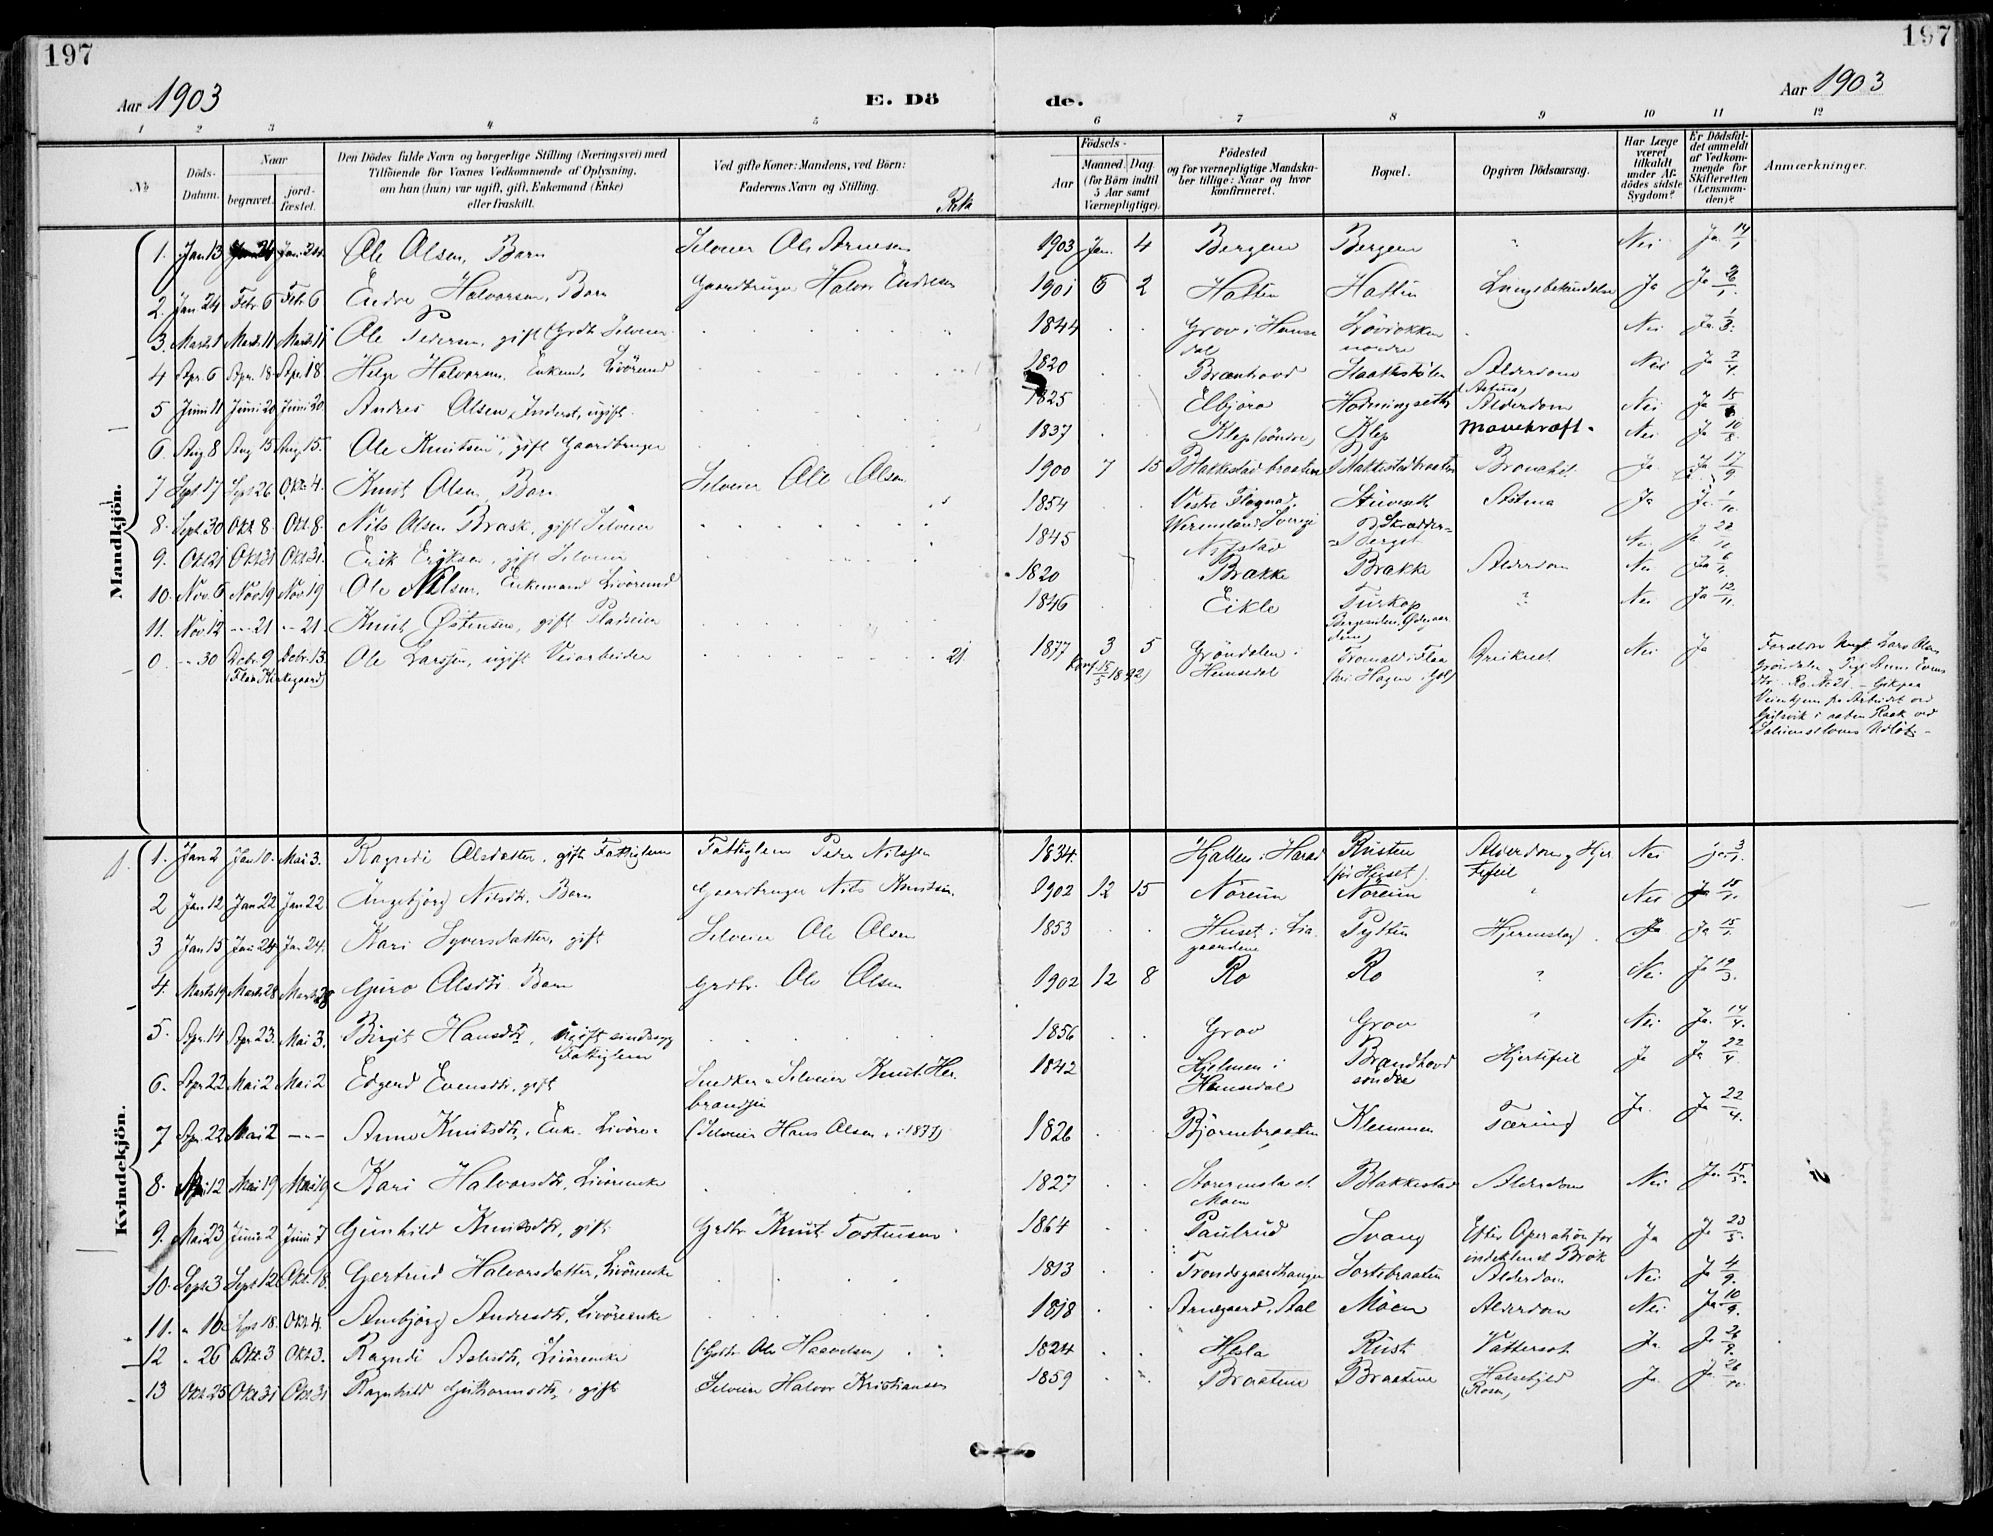 197
197
Aar 1903
E. Dö
de.
Aar 1903
1 2 3 4 5 6 7 8 9 10 11 12
No
Döds-Datum.
Naar begravet. jord-fæstet.
Den Dödes fulde Navn og borgerlige Stilling (Næringsvei) med Tilföiende for Voxnes Vedkommende af Oplysning, om han (hun) var ugift, gift, Enkemand (Enke) eller fraskilt.
Ved gifte Koner: Mandens, ved Börn: Faderens Navn og Stilling.
Födsels-
Aar Maaned. Dag.
(for Börn indtil 5 Aar samt Værnepligtige).
Födested og for værnepligtige Mandskaber tillige: Naar og hvor konfirmeret.
Bopæl.
Opgiven Dödsaarsag.
Har Læge været tilkaldt under Afdödes sidste Sygdom?
Er Dödsfaldet anmeldt af Vedkommende for Skifteretten (Lensmanden)?
Anmærkninger.
Mandkjön.
1. Jan 13 Jan 24 Jan. 24. Ole Olsen, Barn Selveier Ole Arnesen 1903 Jan. 4 Bergem Bergem " Nei Ja 14/1
2. Jan. 24 Febr. 6 Febr. 6 Endre Halvorsen, Barn Gaardbruger Halvor Endresen 1901 6 2 Hattin Hattin Lungebetændelse Ja Ja 26/1.
3. Marts 1 Marts 11 Marts 11 Ole Pedersen, gift Grdb. Selveier 1844 Grov i Hemsedal Lövrokken nordre Nei Ja. 1/3.
4 Apr. 6 Apr. 18 Apr. 18. Helge Halvorsen, Enkem. Livörmd 1820 Brænhovd Haatestölen Alderdom Nei Ja 7/4.
5 Juni 11 Juni 20 Juni 20. Andres Olsen, Inderst, ugift. 1825 Elbjöro Alderdom Nei Ja 15/6
6. Aug 8 Aug 15 Aug 15. Ole Knutsen, gift Gaardbruger 1837 Klep (söndre) Klep Mavekræft. Nei Ja 10/8.
7 Sept 17 Sept 26 Okt. 4. Knut Olsen, Barn Selveier Ole Olsen 1900 7 15 Blakkestadbraaten Blakkestadbraaten Bronchit. Ja. Ja. 17/9
8. Sept. 30 Okt. 8. Okt 8. Nils Olsen Brask, gift Selveier 1854 Vestre Værmland, Sverige Astma Ja Ja. 1/10
9. Okt 21 Okt 31 Okt. 31. Erik Eriksen, gift Selveier 1845 Skrædderberget Nei Ja 22/10
10. Nov. 6 Nov 19 Nov 19 Ole Nilsen, Enkemand Livörmd 1820 Brække Brække Alderdom Nei Ja 6/11.
11. Nov 12 -- 21 -- 21. Knut Östensen, gift Pladseier 1846 Eikle Turkop ? Nei Ja 12/11.
0. -- 30 Decbr. 9 Decbr. 13. Ole Larssen, ugift Veiarbeider 21 1877 3 5 Gröndalen i Hemsedal Nei Ja
(Flaa Kirkegaard)
Konf. 15/5 1892)
Kvindekjön.
1. Jan 2 Jan 10. Mai 3. Ragndi Olsdatter, gift Fattiglem Fattiglem Peder Nilssen 1834. Rusten Alderdom, Hjertefeil Nei Ja 3/1.
2 Jan 12 Jan 22 Jan 22 Ingebjörg Nilsdtr. Barn Gaardbruger Nils Knutsen 1902 12 15 Noreim Noreim " Nei Ja 15/1.
3 Jan 15 Jan 24 Jan 24. Kari Syversdatter, gift Selveier Ole Olsen 1853 Huset i Liagaardene Pyttin Hjerneslag. Ja Ja 15/1
4. Marts 19 Marts 28 Marts 28 Guro Olsdtr. Barn Grdbr. Ole Olsen 1902 12 8 Ro Ro ? Nei. Ja 19/3.
5. Apr. 14 Apr. 23. Mai 3. Birgit Hansdtr., ugift sindssyg Fattiglem 1856 Grov Grov " Nei Ja. 14/4.
6. Apr 22 Mai 2 Mai 2 Edgerd Evensdtr., gift Snedker & Selveier Knut Herbrandsen 1842 Hjelmen i Hemsedal Brændhovd söndre Hjertefeil Ja Ja 22/4.
7 Apr. 22 Mai 2 --- Anne Knutsdtr., Enke Livöre. (Selveier Hans Olsen 1826 Björnebraaten Klemmen Tæring Ja. Ja 22/4.
8. Mai 12 Mai 19 Mai 19 Kari Halvorsdtr., Livörenke 1827 Moen Blakkestad Alderdom Nei Ja. 15/5.
9. Mai 23 Juni 2 Juni 7 Gunhild Knutsdtr, gift Grdbr. Knut Tostensen 1864 Paulrud Svang Efter Operation for indeklemt Brok Ja Ja 23/5.
10. Sept. 3 Sept 12 Okt. 18. Gertrud Halvorsdatter, Livörenke 1813 Trondsgaardhaugen Sortebraaten Alderdom Nei Ja 4/9.
11. " 10. Sept 18. Okt 4. Anbjörg Andresdtr., Livörenke 1818 Arnegaard, Aal Möen Alderdom Nei Ja 10/9.
12 " 26 Okt. 3 Okt 3. Ragndi Livörenke 1824 Hesla Rust Vattersot Ja. Ja 26/9.
13 Okt. 25 Okt 31 Okt 31 Ragnhild Guttormsdtr., gift Selveier Halvor Kristiansen 1859 Braatene Braatene (Rosen) Ja. Ja. 26/10.